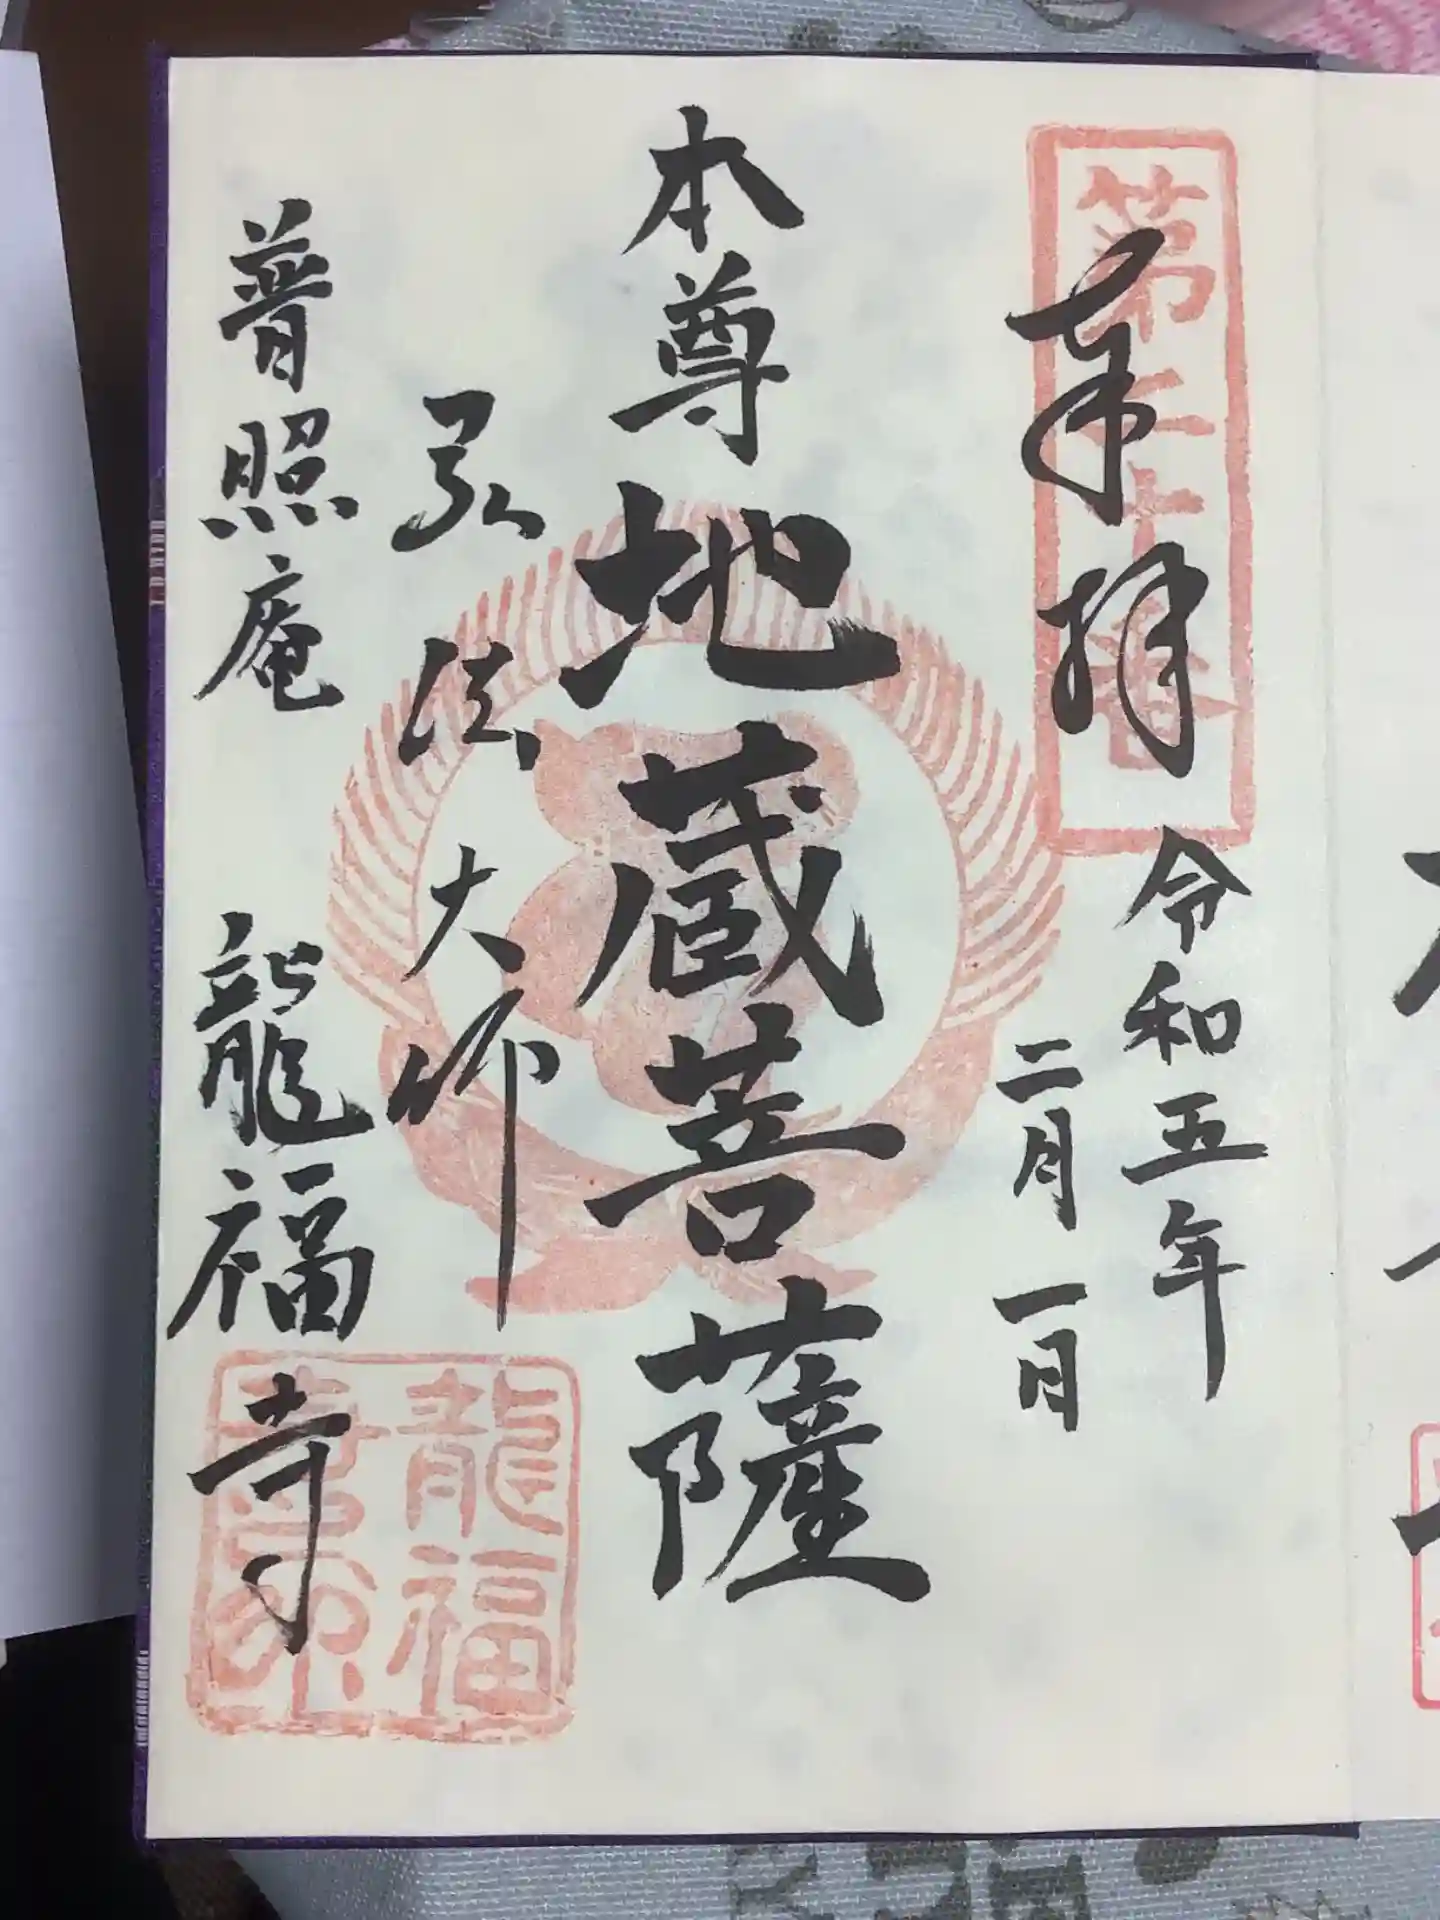 奉拝
令和五年
二月一日
本尊地蔵菩薩
弘法大師
普照庵 龍福寺
第二十番
龍福
寺印